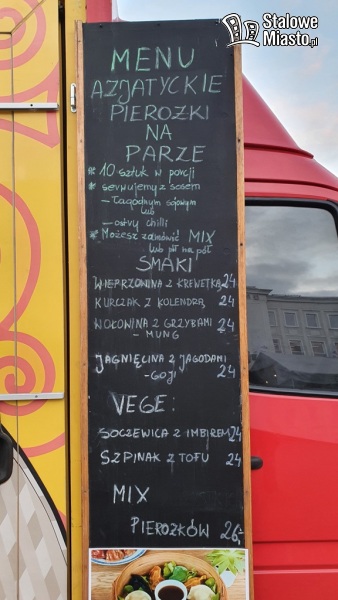 Stalowe
Miasto.pl
MENU
AZJATYCKIE
PIEROŻKI
NA
PARZE
* 10 sztuk w porcji
* serwujemy z sosem
- łagodnym sojowym
lub
- ostry chilli
* Możesz zamówić MIX
lub pół na pół
SMAKI
WIEPRZOWINA Z KREWETKĄ 24
KURCZAK Z KOLENDRĄ 24
WOŁOWINA Z GRZYBAMI 24
- MUNG
JAGNIĘCINA Z JAGODAMI
- GOJI 24
VEGE:
SOCZEWICA Z IMBIREM 24
SZPINAK Z TOFU 24
MIX
PIEROŻKÓW 26,-